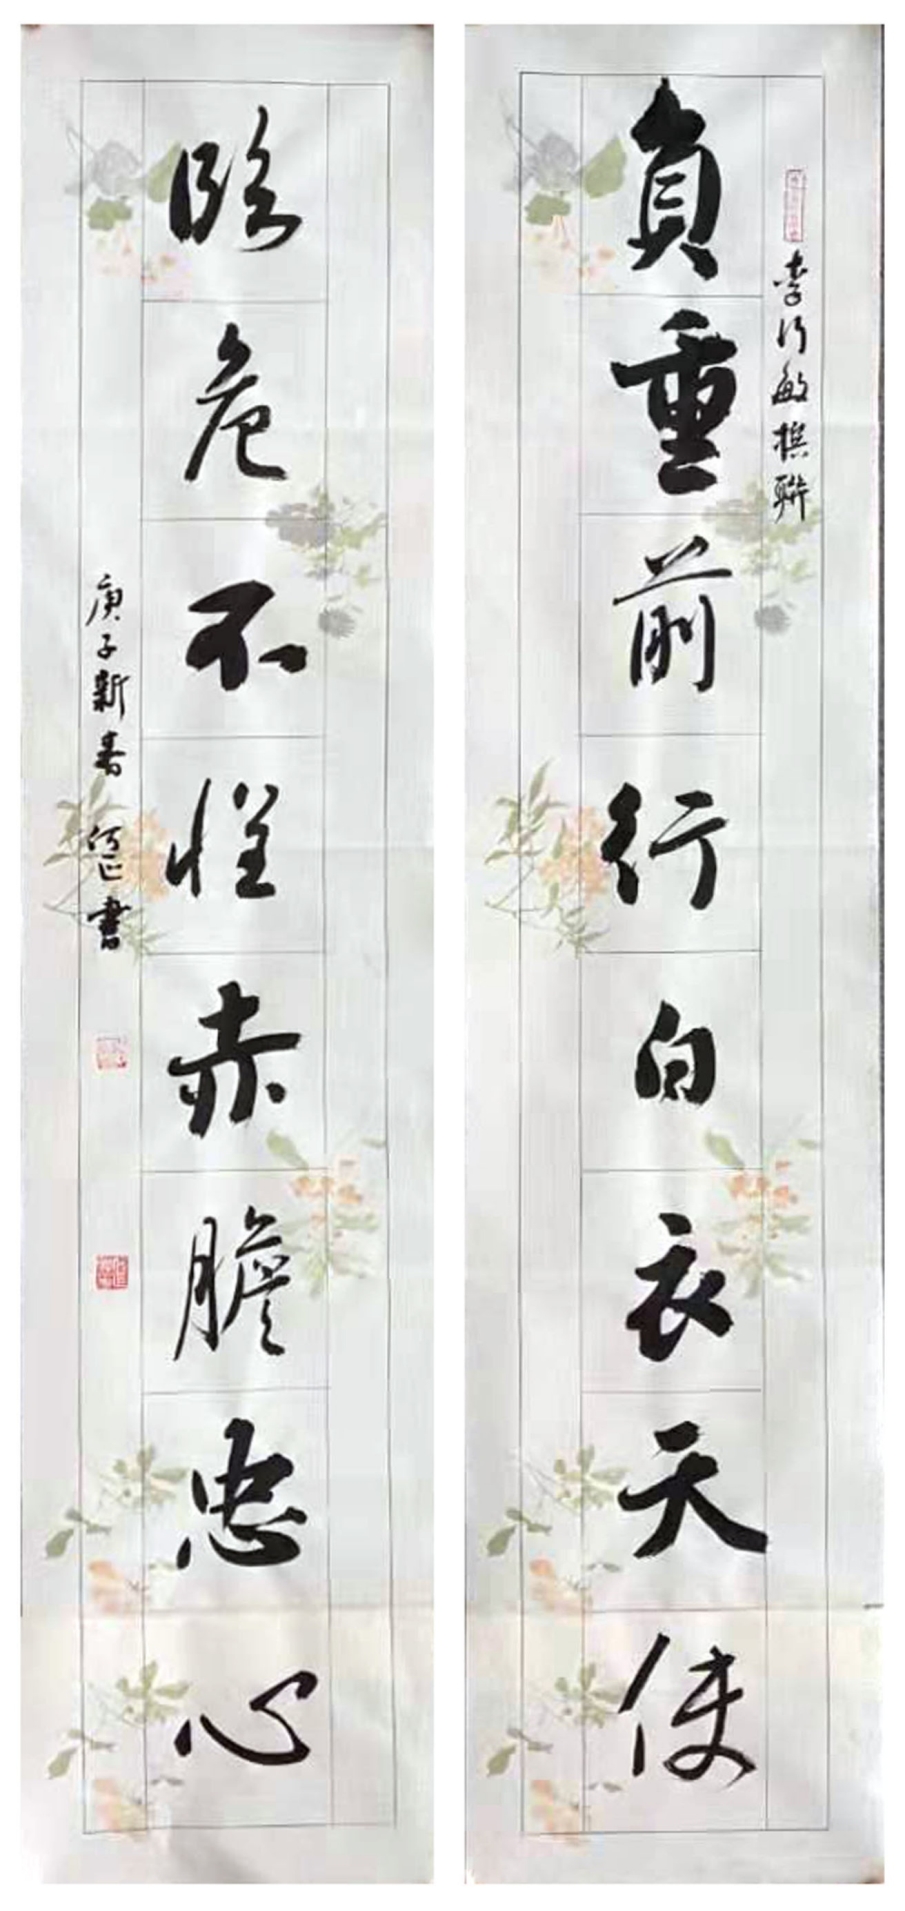 李行敏撰聯
負重前行白衣天使
臨危不懼赤膽忠心
庚子新春 書